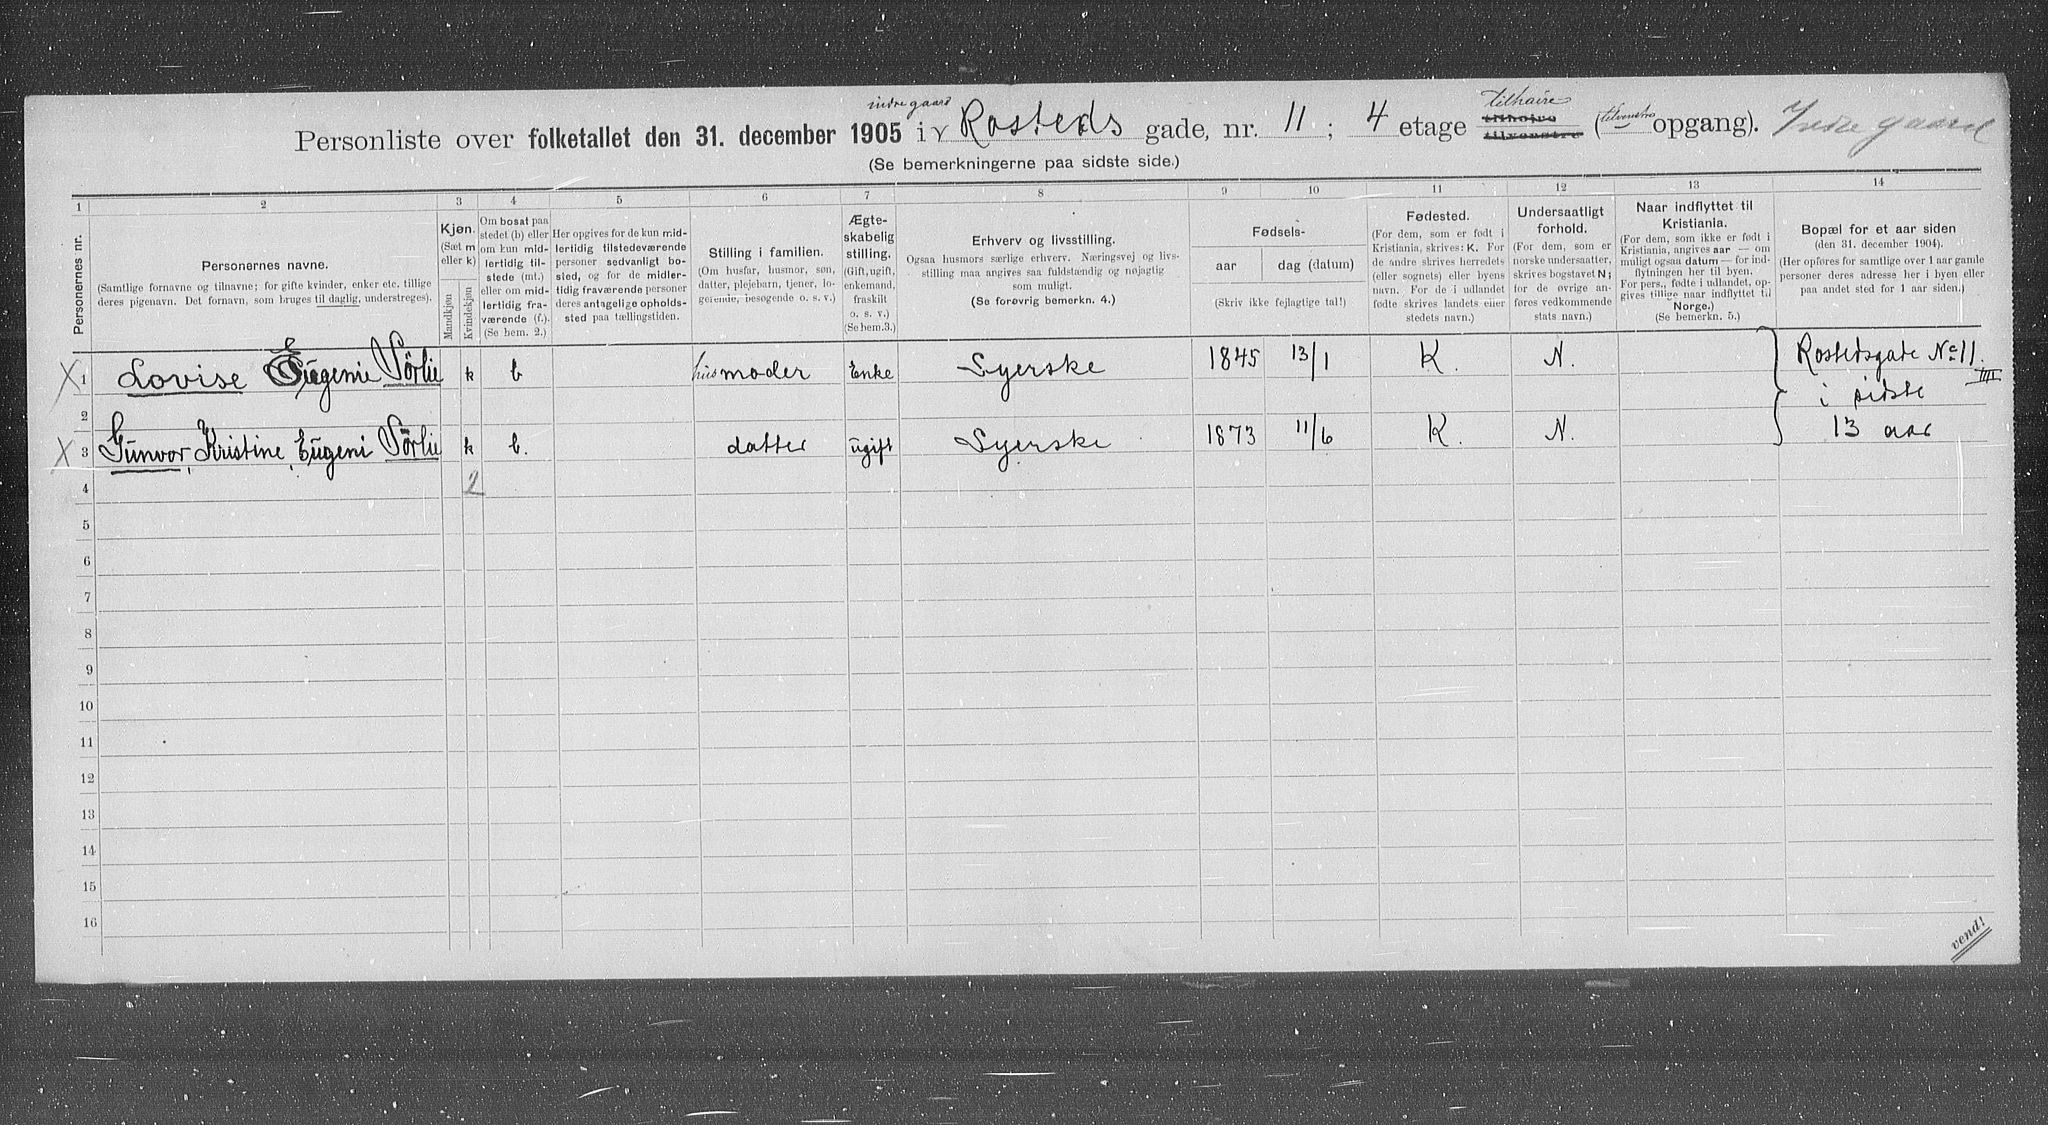 indre gaard
Personliste over folketallet den 31. december 1905 i Rosteds gade, nr. 11; 4 etage tilhøire (tilvenstre opgang). Indre gaard
(Se bemerkningerne paa sidste side.)
1 2 3 4 5 6 7 8 9 10 11 12 13 14
Personernes nr.
Personernes navne.
(Samtlige fornavne og tilnavne; for gifte kvinder, enker etc. tillige
deres pigenavn. Det fornavn, som bruges til daglig, understreges).
Kjøn.
(Sæt m
eller k)
Mandkjøn
Kvindekjøn
Om bosat paa
stedet (b) eller
om kun mid-
lertidig til-
stede (mt.)
eller om mid-
lertidig fra-
værende (f.).
(Se bem. 2.)
Her opgives for de kun mid-
lertidig tilstedeværende
personer sedvanligt bo-
sted, og for de midler-
tidig fraværende personer
deres antagelige opholds-
sted paa tællingstiden.
Stilling i familien.
(Om husfar, husmor, søn,
datter, plejebarn, tjener, lo-
gerende, besøgende o. s. v.)
Ægte-
skabelig
stilling.
(Gift, ugift,
enkemand,
fraskilt
o. s. v.)
(Se bem.3.)
Erhverv og livsstilling.
Ogsaa husmors særlige erhverv. Næringsvej og livs-
stilling maa angives saa fuldstændig og nøjagtig
som muligt.
(Se forøvrig bemerkn. 4.)
Fødsels-
aar
dag (datum)
(Skriv ikke fejlagtige tal!)
Fødested.
(For dem, som er født i
Kristiania, skrives: K. For
de andre skrives herredets
(eller sognets) eller byens
navn. For de i udlandet
fødte skrives landets eller
stedets navn.)
Undersaatligt
forhold.
(For dem, som er
norske undersaatter,
skrives bogstavet N;
for de øvrige an-
føres vedkommende
stats navn.)
Naar indflyttet til
Kristiania.
(For dem, som ikke er født i
Kristiania, angives aar — om
muligt ogsaa datum — for ind-
flytningen her til byen.
For pers., fødte i udlandet, op-
gives tillige naar indflyttet til
Norge.)
(Se bemerkn. 5.)
Bopæl for et aar siden
(den 31. december 1904).
(Her opføres for samtlige over 1 aar gamle
personer deres adresse her i byen eller
paa andet sted for 1 aar siden.)
X 1 Lovise Eugenie Sörlie k b husmoder Enke Syerske 1845 13/1 K. N. Rostedsgade No 11 IIII
2 i sidste
X 3 Gunvor, Kristine, Eugeni Sörlie k b. datter ugift Syerske 1873 11/6 K. N. 13 aar
4 2
5
6
7
8
9
10
11
12
13
14
15
16
vend!